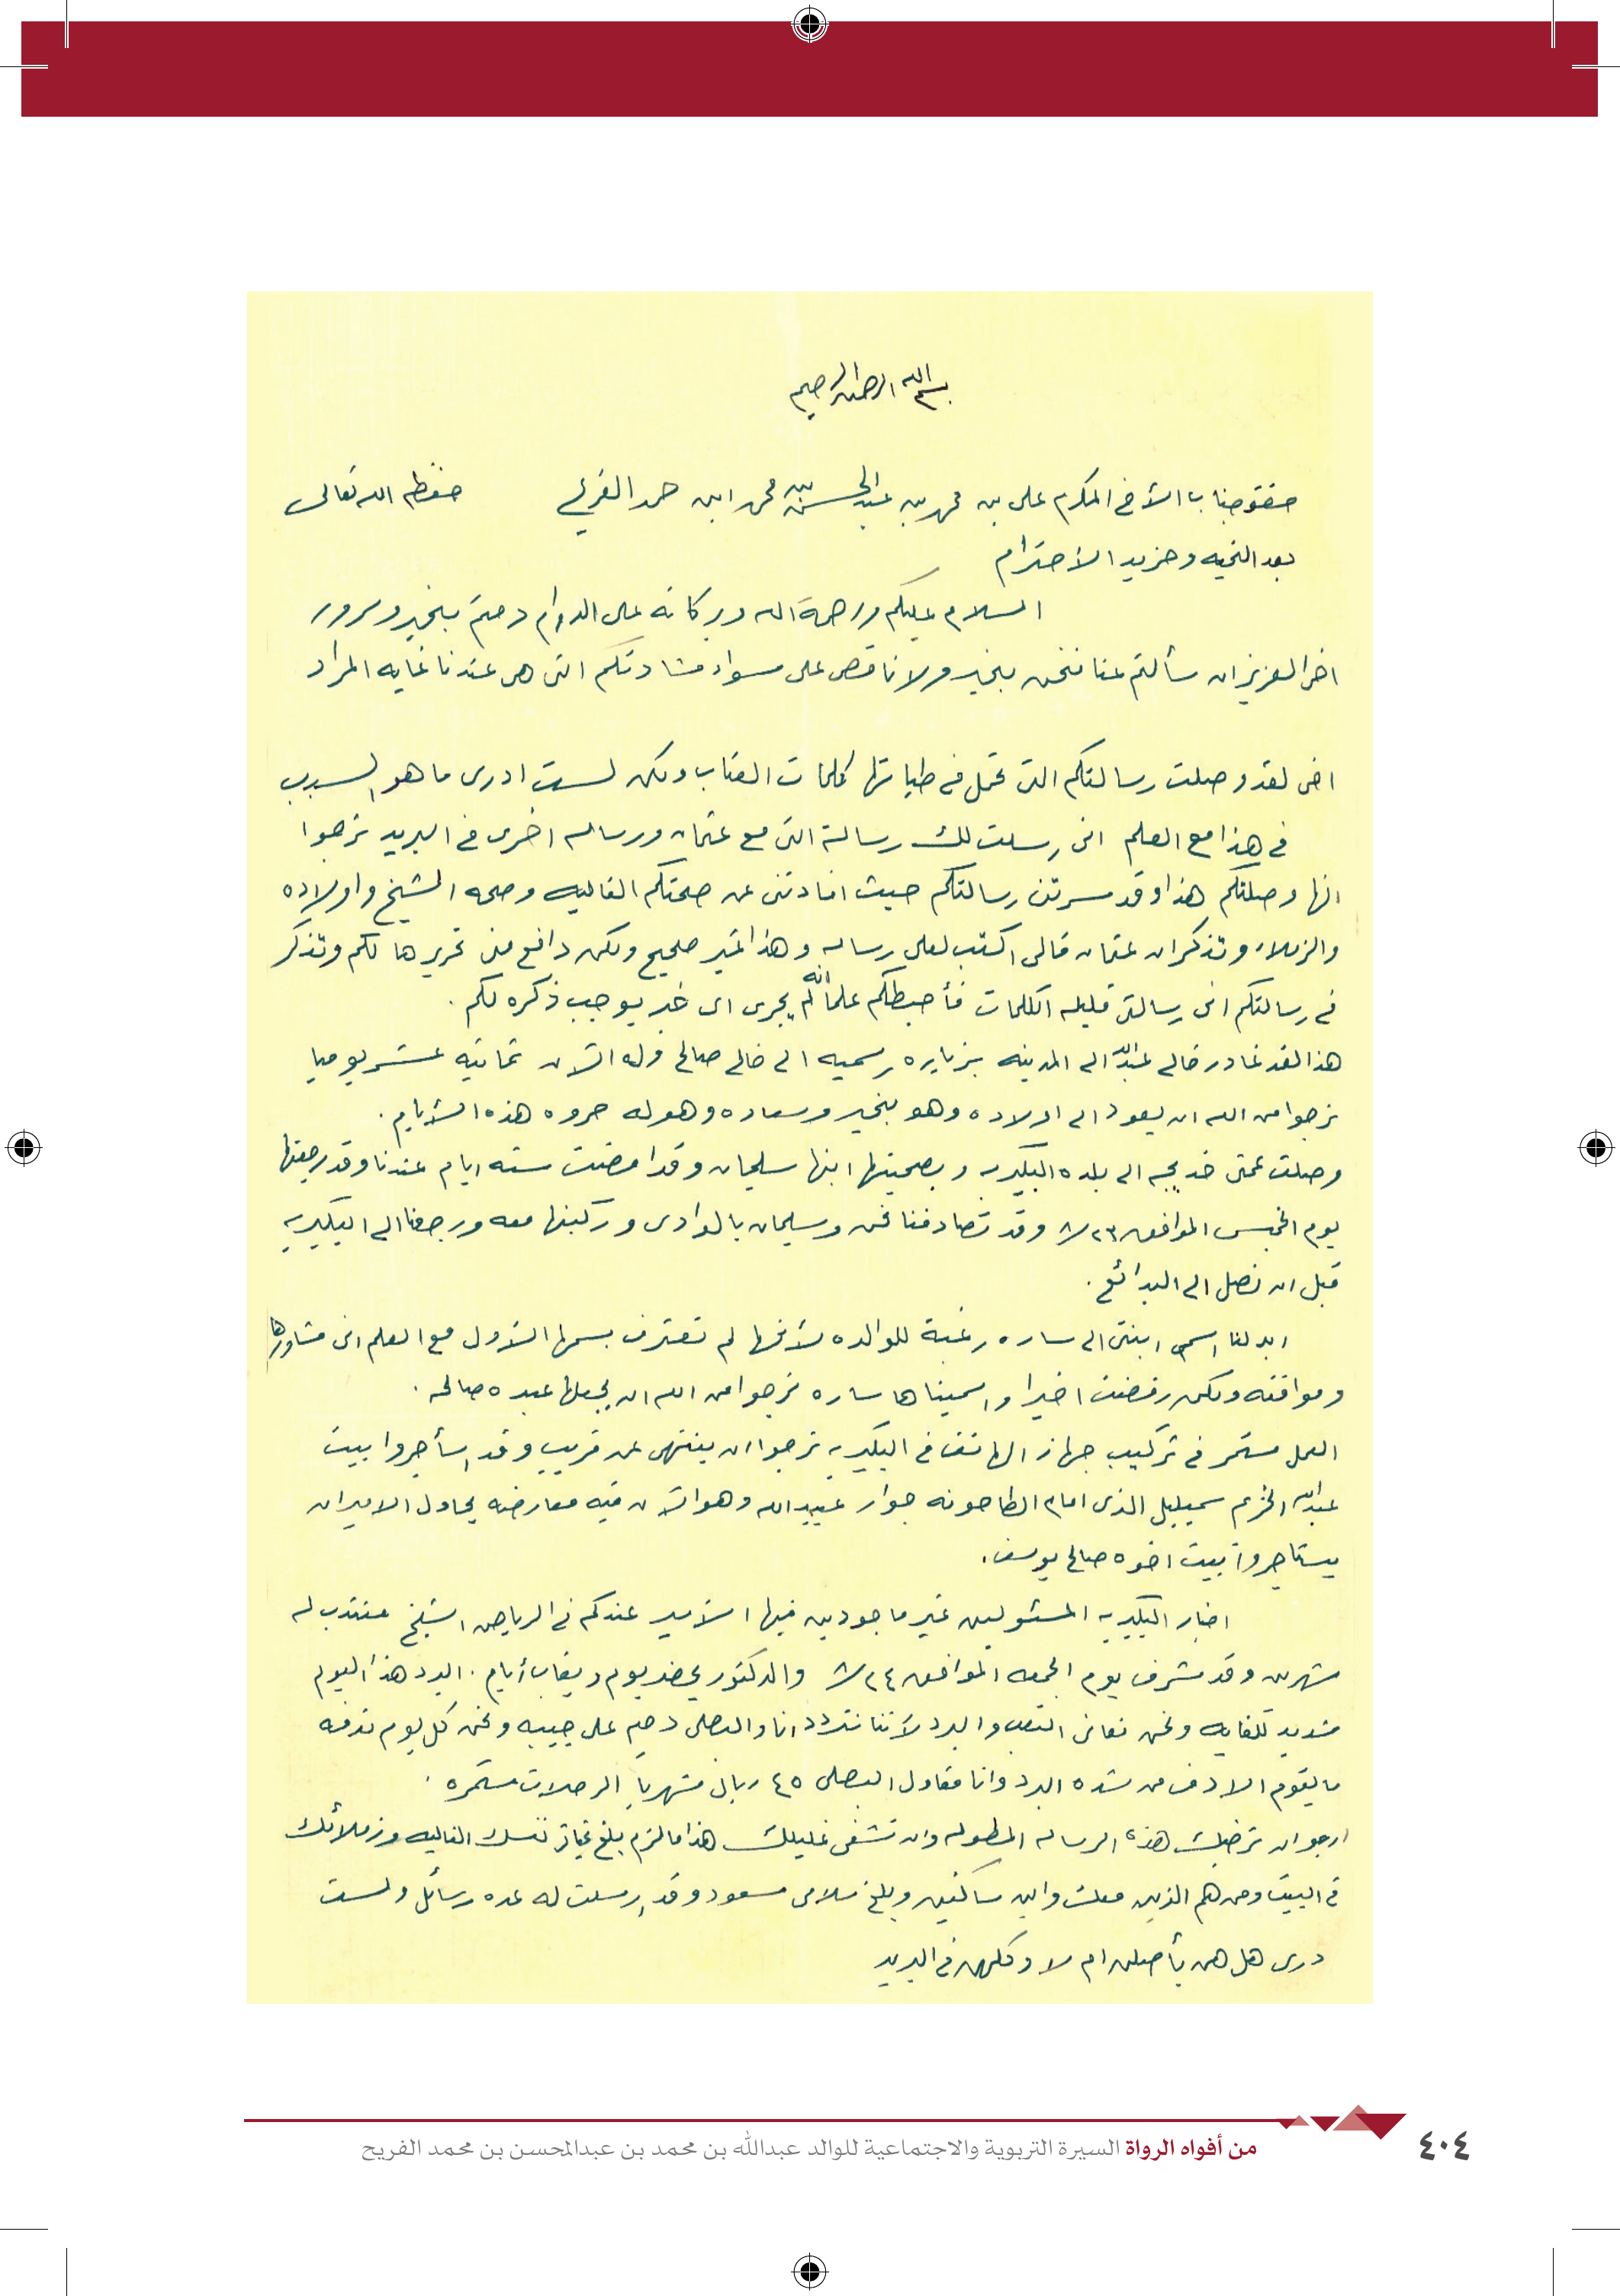 بسم الله الرحمن الرحيم
جناب الأخ المكرم على بن محمد بن عبدالمحسن بن محمد ابن حمد الفريح حفظه الله تعالى
بعد التحيه ومزيد الأحترام
السلام عليكم ورحمة الله وبركاته على الدوام دمتم بخير وسرور
اخى العزيز ان سألتم عنا فنحن بخير ولا ناقص على سواء مشادتكم التى هى عندنا غايه المراد
اخى لقد وصلت رسالتكم التى تحمل فى طياتها كلمات العتاب ولكن لست ادرى ما هو السبب
فى هذا مع العلم انى رسلت لك رسالة التى مع عثمان ورساله اخرى فى البريد نرجوا
انها وصلتكم هذا وقد سرتنى رسالتكم حيث افادتنى عن صحتكم الغاليه وصحه الشيخ واولاده
والزملاء وتذكر ان عثمان قالى اكتب لعلى رساله وهذا غير صحيح ولكن دافع منى تحريرها لكم وتذكر
فى رسالتكم انى رسالتى قليله الكلمات فأحيطكم علما انه لم يجرى اى خبر يوجب ذكره لكم .
هذا لقد غادر خالى عبدالله الى المدينه بزياره رسميه الى خالى صالح وله الآن ثمانيه عشر يوميا
نرجوا من الله ان يعود الى اولاده وهو بخير وسعاده وهوله حروه هذه الأيام .
وصلت عمتى خديجه الى بلده البكيريه وبصحبتها ابنها سليمان وقد امضت سته ايام عندنا وقد رجعتها
يوم الخميس الموافق ٨/٢٣ وقد تصادفنا نحن وسليمان بالوادى وركبتها معه ورجعنا الى البكيريه
قبل ان نصل الى البدائع .
ابدلنا اسم ابنتى الى ساره رغبة للوالده لأنها لم تعترف بسمها الأول مع العلم انى مشاورها
وموافقه ولكن رفضت اخيرا واسميناها ساره نرجوا من الله ان يجعلها عبده صالحه .
العمل مستمر فى تركيب جهاز الهاتف فى البكيريه نرجوا ان ينتهى عن قريب وقد استأجروا بيت
عبدالله الخزيم الذى امام الطاحونه جوار عبيدالله وهو الآن فيه معارضه يحاول الامير ان
يستاجروا بيت اخوه صالح يوسف .
اخبار البكيريه المسئولين غير ماجودين فيها الأمير عندكم فى الرياض الشيخ منتدب له
شهرين وقد شرف يوم الجمعه الموافق ٨/٢٤ والدكتور يحضر يوم ويغاب أيام . البرد هذا اليوم
شديد للغايه ونحن نعانى التعب والبرد لأننا نتردد انا والبصلى دميم على جيبه ونحن كل يوم ندفه
ما يقوم الا دف من شده البرد وانا مقاول البصلى ٤٥ ريال شهريا الرحلات مستمره .
ارجو ان ترضيك هذه الرساله المطوله وان تشفى غليلك هذا ما لزم بلغ تحياتى نفسك الغاليه وزملائك
فى البيت ومن هم الذين معك واين ساكنين وبلغ سلامى مسعود وقد رسلت له عده رسائل ولست
درى هل هن يأصلن ام لا وكلهن فى البريد
من أفواه الرواة السيرة التربوية والاجتماعية للوالد عبدالله بن محمد بن عبدالمحسن بن محمد الفريح
٤٠٤